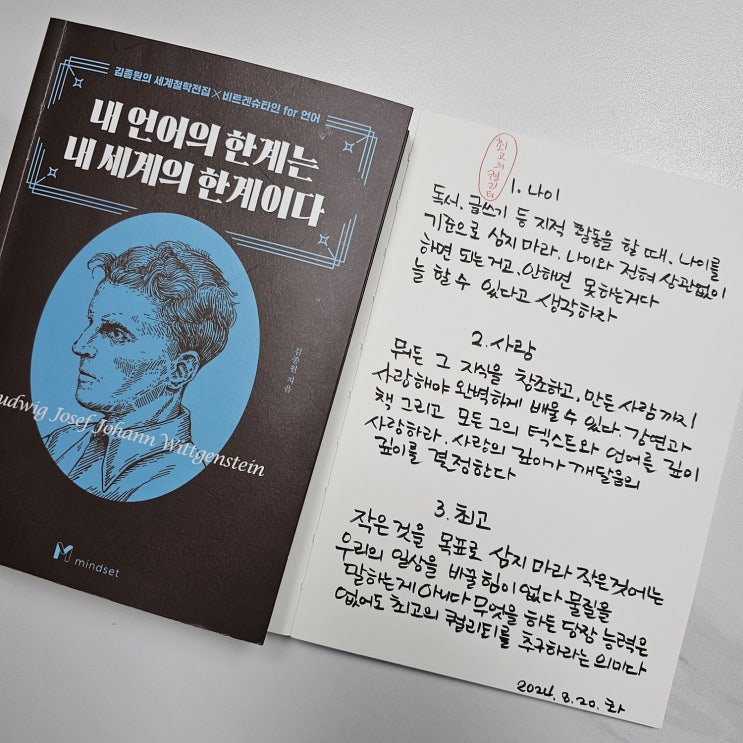 김종원의 세계철학전집 × 비트겐슈타인 for 언어
내 언어의 한계는
내 세계의 한계이다
김종원 지음
Ludwig Josef Johann Wittgenstein
mindset
최고의 퀄리티
1. 나이
독서. 글쓰기 등 지적 활동을 할 때. 나이를
기준으로 삼지 마라. 나이와 전혀 상관없이
하면 되는거고. 안하면 못하는거다
늘 할 수 있다고 생각하라
2. 사랑
뭐든 그 지식을 창조하고. 만든 사람까지
사랑해야 완벽하게 배울 수 있다. 강연과
책 그리고 모든 그의 텍스트와 언어를 깊이
사랑하라. 사랑의 깊이가 깨달음의
깊이를 결정한다
3. 최고
작은 것을 목표로 삼지 마라 작은것에는
우리의 일상을 바꿀 힘이 없다 물질을
말하는게 아니다 무엇을 하든 당장 능력은
없어도 최고의 퀄리티를 추구하라는 의미다
2024. 8. 20. 화